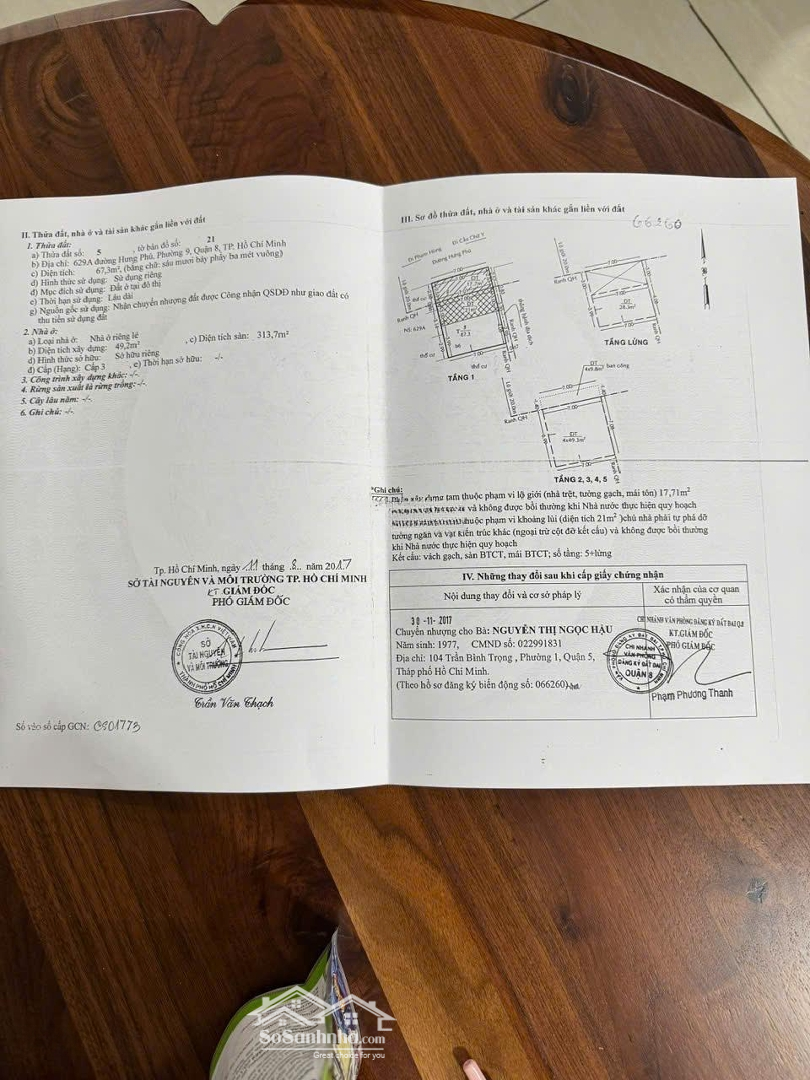 II. Thửa đất, nhà ở và tài sản khác gắn liền với đất
1. Thửa đất:
a) Thửa đất số: 5 , tờ bản đồ số: 21
b) Địa chỉ: 629A đường Hưng Phú, Phường 9, Quận 8, TP. Hồ Chí Minh
c) Diện tích: 67,3m², (bằng chữ: sáu mươi bảy phẩy ba mét vuông)
d) Hình thức sử dụng: Sử dụng riêng
đ) Mục đích sử dụng: Đất ở tại đô thị
e) Thời hạn sử dụng: Lâu dài
g) Nguồn gốc sử dụng: Nhận chuyển nhượng đất được Công nhận QSDĐ như giao đất có
thu tiền sử dụng đất
2. Nhà ở:
a) Loại nhà ở: Nhà ở riêng lẻ
b) Diện tích xây dựng: 49,2m² , c) Diện tích sàn: 313,7m²
d) Hình thức sở hữu: Sở hữu riêng
đ) Cấp (Hạng): Cấp 3 , e) Thời hạn sở hữu: -/-
3. Công trình xây dựng khác: -/-
4. Rừng sản xuất là rừng trồng: -/-
5. Cây lâu năm: -/-
6. Ghi chú: -/-
Tp. Hồ Chí Minh, ngày 11 tháng 8 năm 2017
SỞ TÀI NGUYÊN VÀ MÔI TRƯỜNG TP. HỒ CHÍ MINH
KT GIÁM ĐỐC
PHÓ GIÁM ĐỐC
SỞ
TÀI NGUYÊN
VÀ MÔI TRƯỜNG
Trần Văn Thạch
Số vào sổ cấp GCN: CS01773
III. Sơ đồ thửa đất, nhà ở và tài sản khác gắn liền với đất
66260
Đi Phạm Hùng
Đi Cầu Chữ Y
Đường Hưng Phú
Lộ giới 20.0m
Ranh QH
NS: 629A
thổ cư
TẦNG 1
Lộ giới 20.0m
Ranh QH
DT
TẦNG LỬNG
Lộ giới 20.0m
Ranh QH
DT
4x9.8m²
ban công
DT
4x49.3m²
TẦNG 2, 3, 4, 5
*Ghi chú:
tạm thuộc phạm vi lộ giới (nhà trệt, tường gạch, mái tôn) 17,71m²
và không được bồi thường khi Nhà nước thực hiện quy hoạch
thuộc phạm vi khoảng lùi (diện tích 21m²) chủ nhà phải tự phá dỡ
tường ngăn và vật kiến trúc khác (ngoại trừ cột đỡ kết cấu) và không được bồi thường
khi Nhà nước thực hiện quy hoạch
Kết cấu: vách gạch, sàn BTCT, mái BTCT; số tầng: 5+lửng
IV. Những thay đổi sau khi cấp giấy chứng nhận
Nội dung thay đổi và cơ sở pháp lý
Xác nhận của cơ quan
có thẩm quyền
30 -11- 2017
Chuyển nhượng cho Bà: NGUYỄN THỊ NGỌC HẬU
Năm sinh: 1977, CMND số: 022991831
Địa chỉ: 104 Trần Bình Trọng , Phường 1, Quận 5,
Thành phố Hồ Chí Minh.
(Theo hồ sơ đăng ký biến động số: 066260)
CHI NHÁNH VĂN PHÒNG ĐĂNG KÝ ĐẤT ĐAI Q.8
KT.GIÁM ĐỐC
PHÓ GIÁM ĐỐC
CHI NHÁNH
VĂN PHÒNG
ĐĂNG KÝ ĐẤT ĐAI
QUẬN 8
Phạm Phương Thanh
SoSanhnha.com
Great choice for you